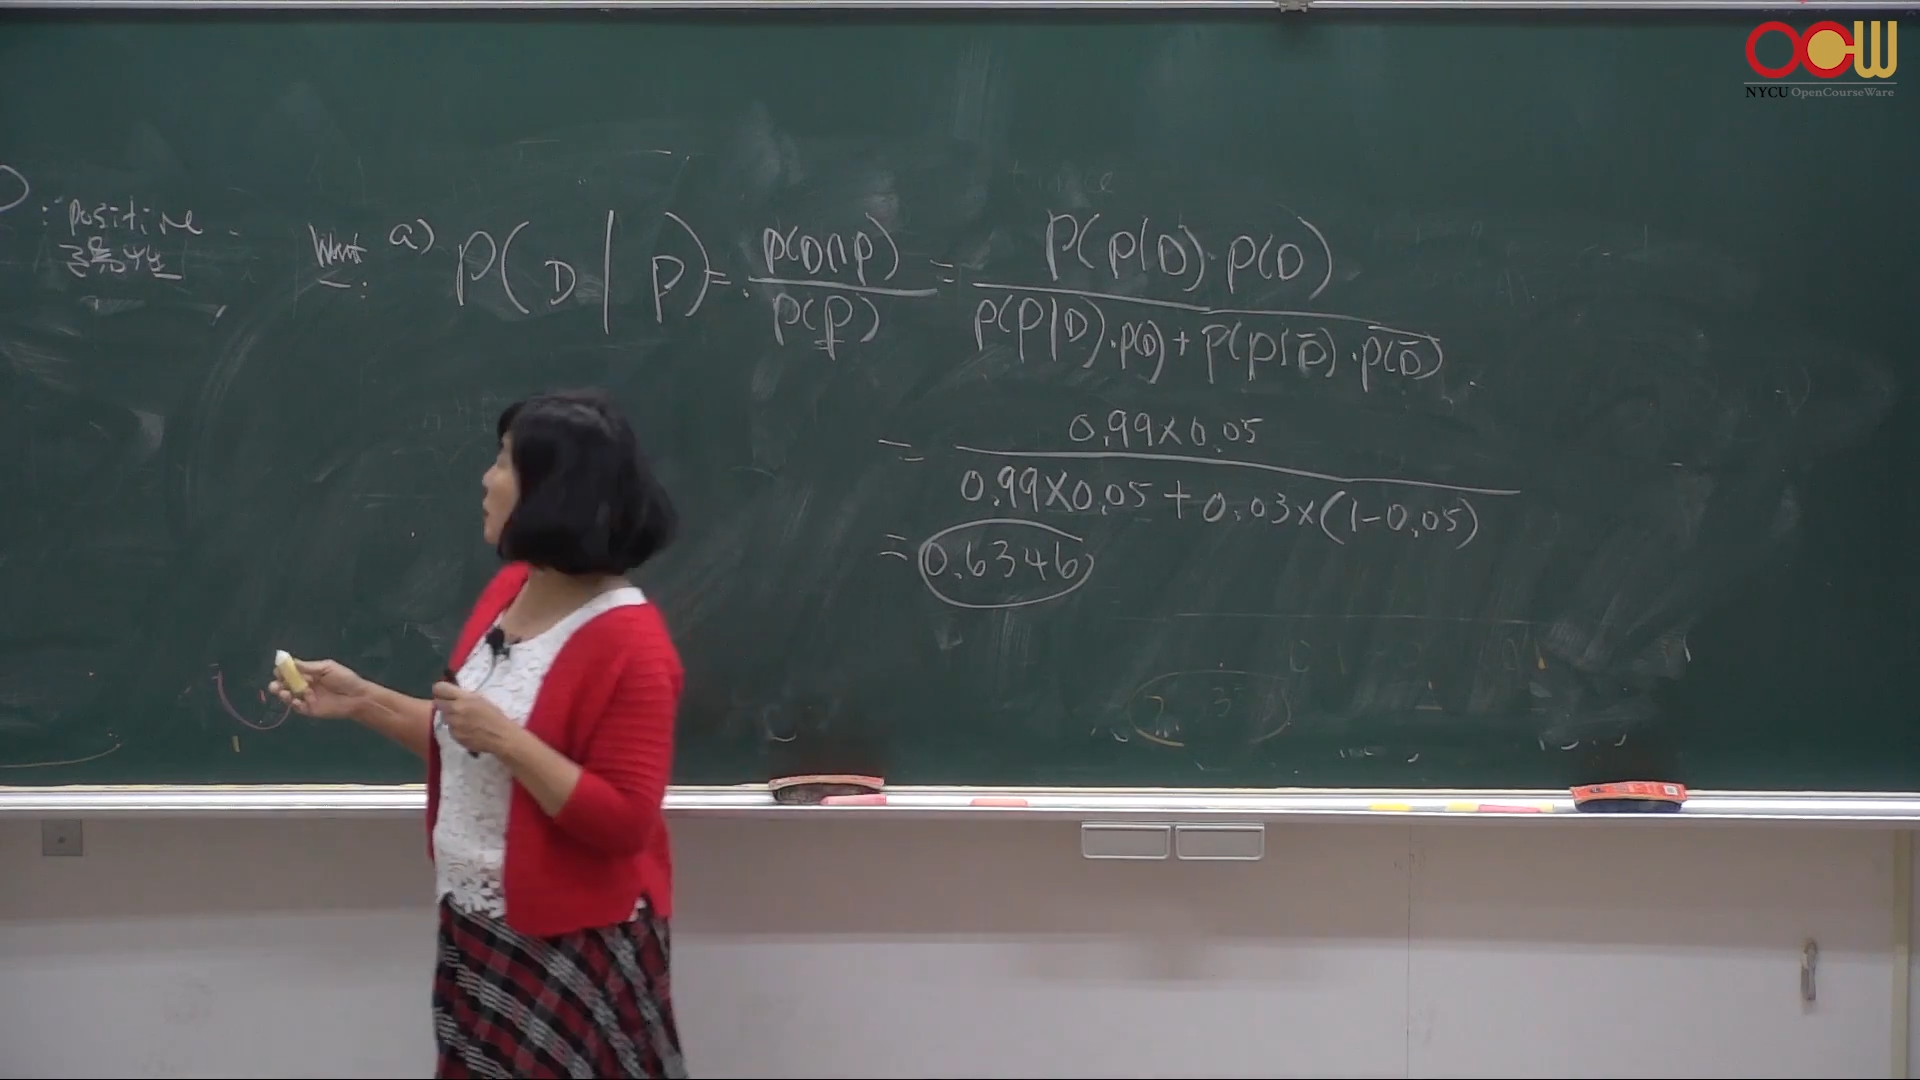 OCW
NYCU OpenCourseWare
: positive
Want: a) P(D|P) = P(D∩P) / P(P) = P(P|D)·P(D) / P(P|D)·P(D) + P(P|D̄)·P(D̄)
= 0.99×0.05 / 0.99×0.05 + 0.03×(1-0.05)
= 0.6346